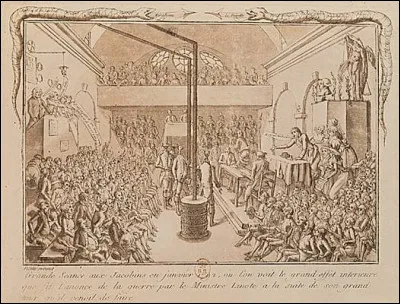 Grande Séance aux Jacobins en janvier 1792, où l'on voit le grand effet interieure
que fit l'anonce de la guerre par le Ministre Linote à la suite de son grand
tour qu'il venoit de faire.